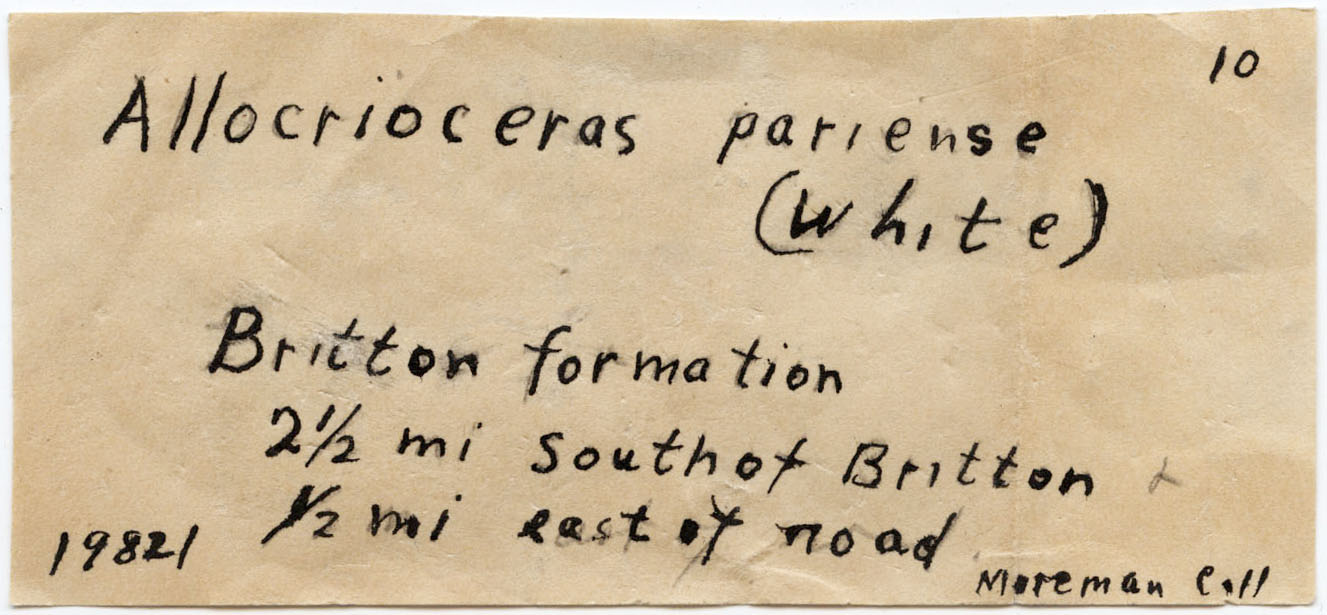 10
Allocrioceras pariense
(White)
Britton formation
2½ mi south of Britton &
½ mi east of road
19821
Moreman Coll